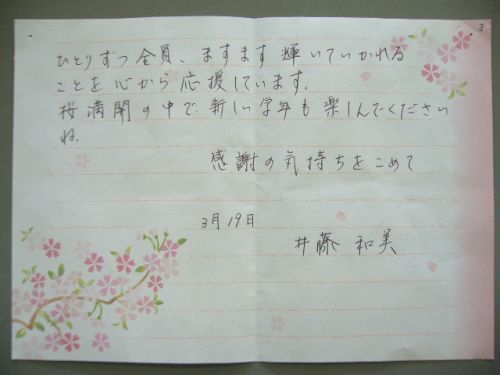 3
ひとりずつ全員、ますます輝いていかれる
ことを心から応援しています。
桜満開の中で、新しい学年も楽しんでください
ね。
感謝の気持ちをこめて
3月19日
井藤 和美